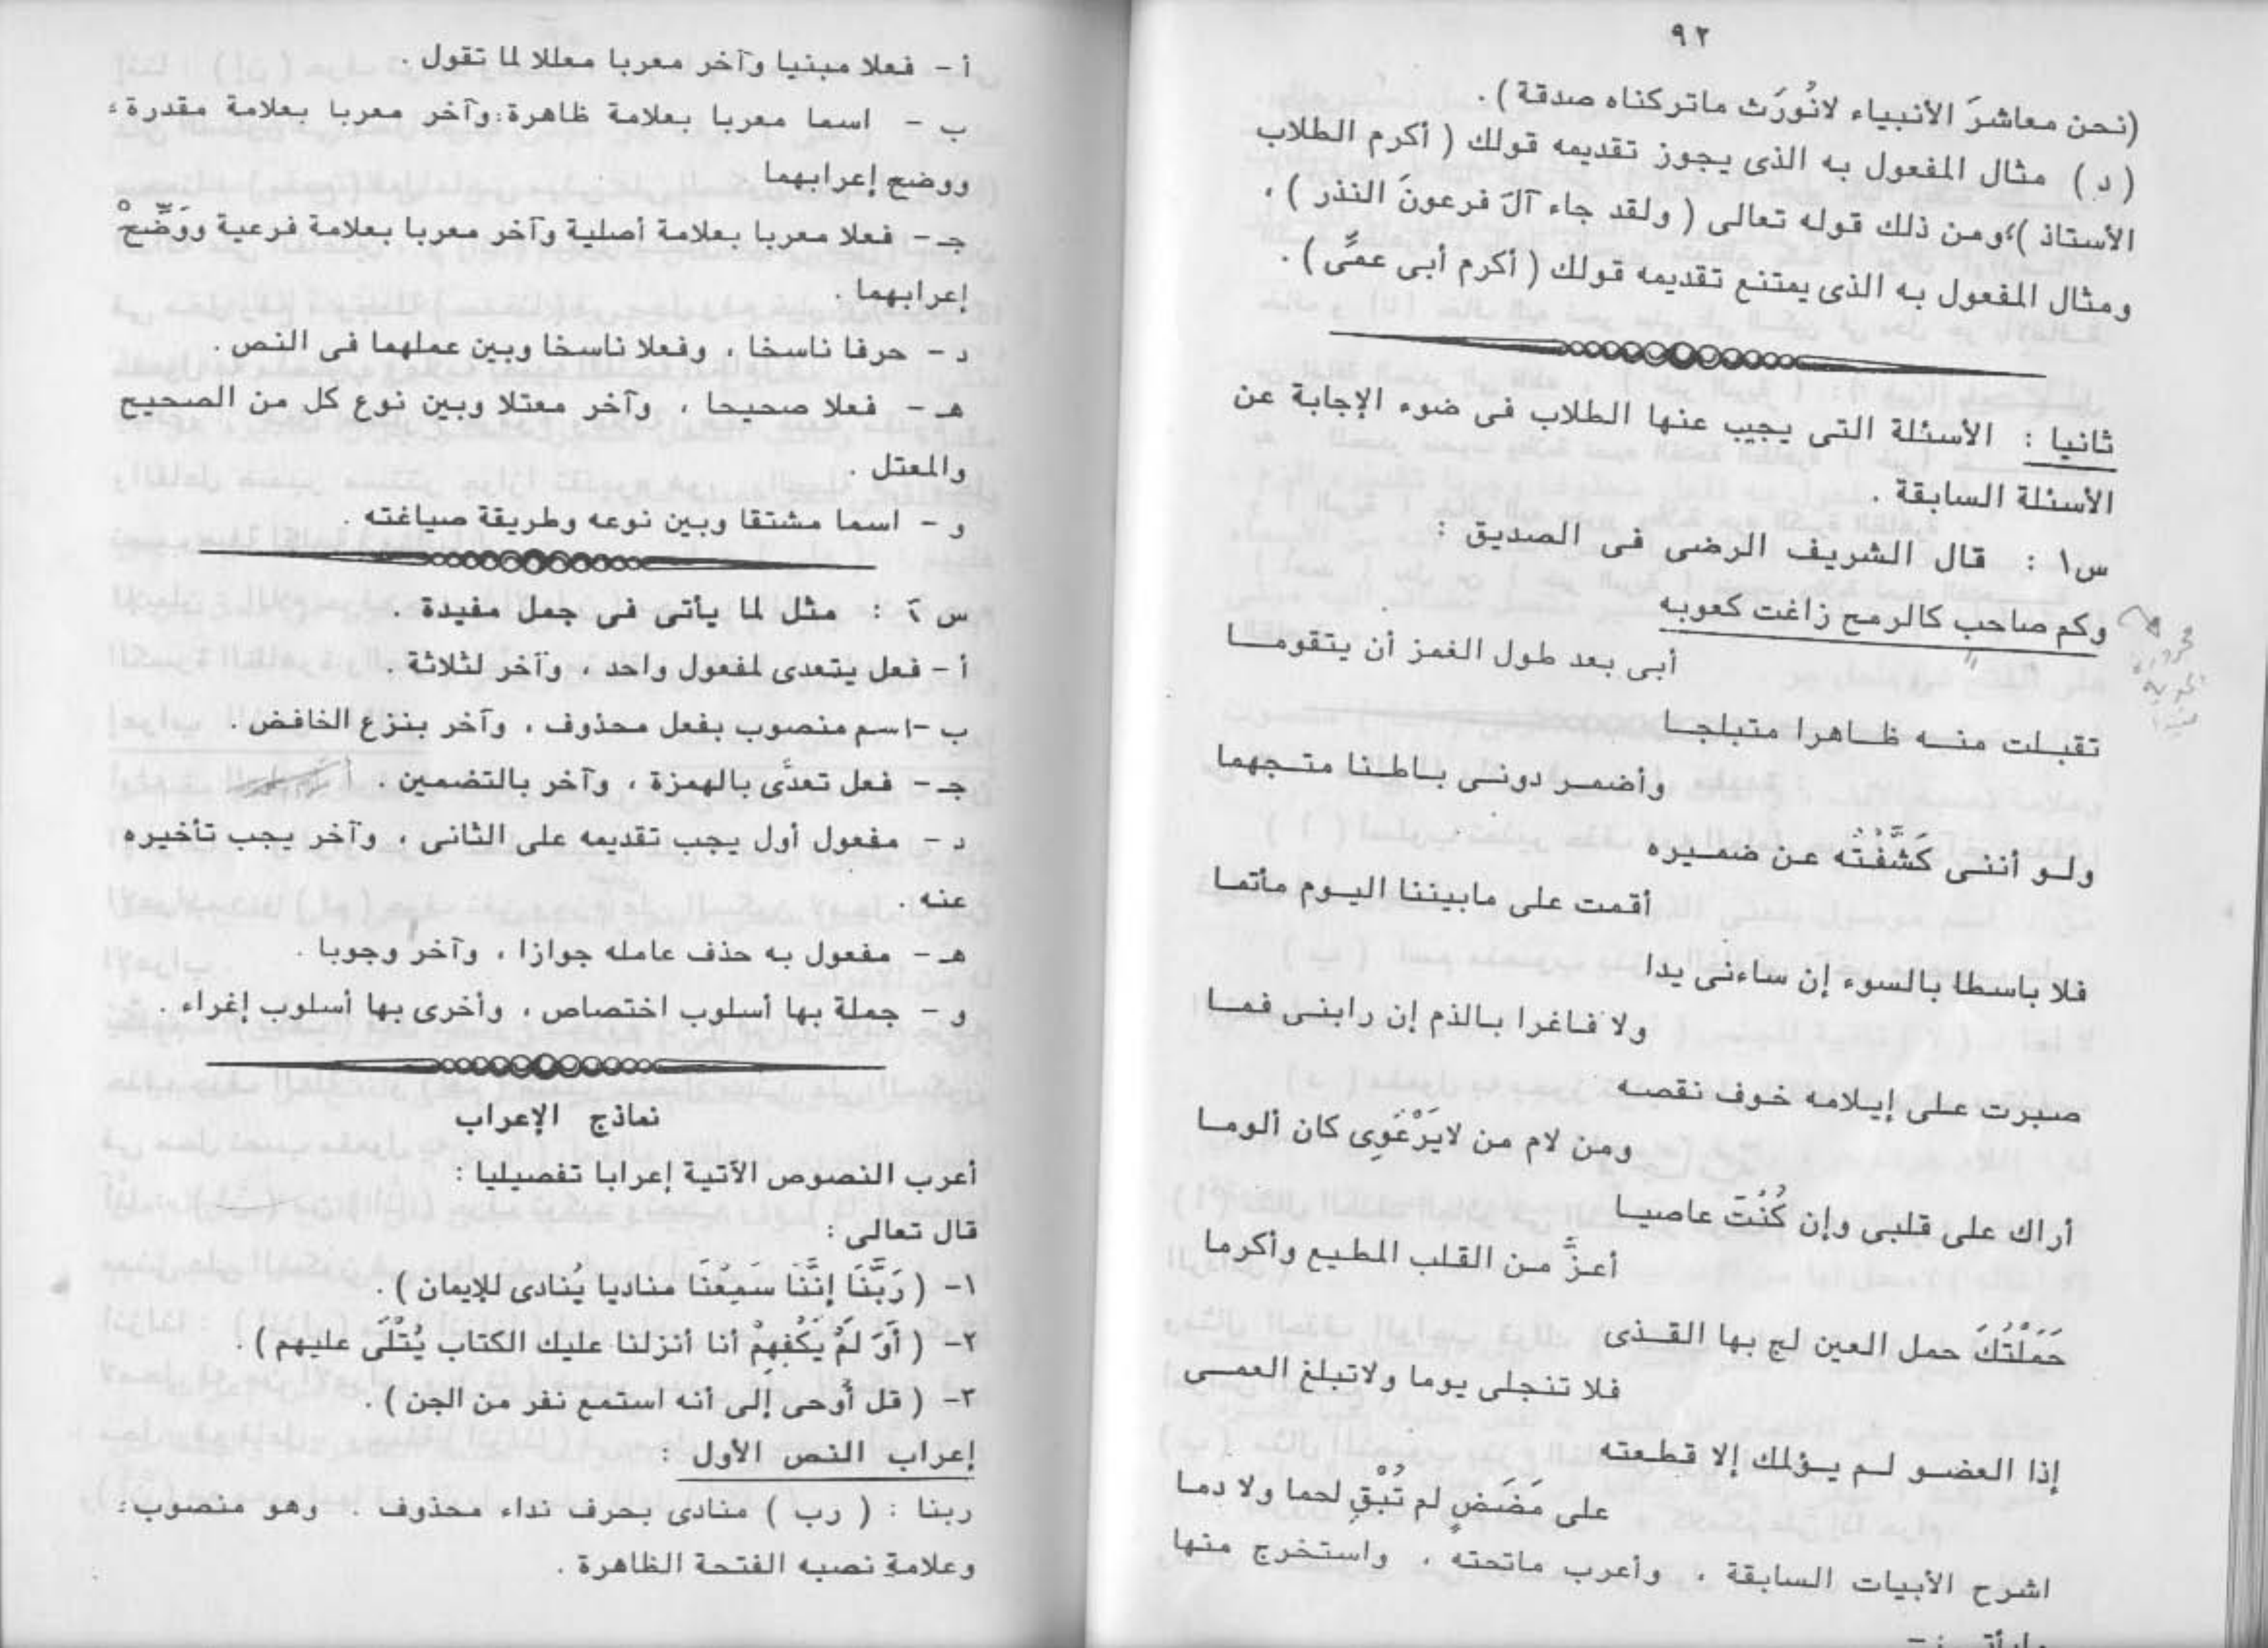 ٩٢
(نحن معاشرَ الأنبياء لانُورَث ماتركناه صدقة) .
(د) مثال المفعول به الذى يجوز تقديمه قولك ( أكرم الطلاب
الأستاذ )،ومن ذلك قوله تعالى ( ولقد جاء آلَ فرعونَ النذر ) ،
ومثال المفعول به الذى يمتنع تقديمه قولك ( أكرم أبى عمِّى ) .
ثانيا : الأسئلة التى يجيب عنها الطلاب فى ضوء الإجابة عن
الأسئلة السابقة .
س١ : قال الشريف الرضى فى الصديق :
وكم صاحب كالرمح زاغت كعوبه
أبى بعد طول الغمز أن يتقومـــا
تقبـلت منـــه ظـــاهرا متبلجـــا
وأضمـــر دونـــى بـــاطـــنا متـــجهما
ولـــو أننـــى كَشَّفْتُه عـن ضمـــيره
أقمـــت على مابيننا اليـــوم مأتمـــا
فلا باسطا بالسوء إن ساءنى يدا
ولا فـــاغرا بـــالذم إن رابنـــى فمـــا
صـبرت علـــى إيـــلامـه خـوف نقصـه
ومن لام من لايَرْعَوِى كان ألومـــا
أراك على قلبى وإن كُنْتَ عاصيـــا
أعزَّ مـن القلب المطيـــع وأكرما
حَمَلْتُكَ حمل العين لج بها القـــذى
فلا تنجلى يوما ولاتبلغ العمـــى
إذا العضـــو لـــم يـــؤلمك إلا قطـــعته
على مَضَضٍ لم تُبْقِ لحما ولا دمـا
اشرح الأبيات السابقة ، وأعرب ماتحته ، واستخرج منها
أ - فعلا مبنيا وآخر معربا معللا لما تقول .
ب - اسما معربا بعلامة ظاهرة،وآخر معربا بعلامة مقدرة،
ووضح إعرابهما .
جـ - فعلا معربا بعلامة أصلية وآخر معربا بعلامة فرعية ووَضِّحْ
إعرابهما .
د - حرفا ناسخا ، وفعلا ناسخا وبين عملهما فى النص .
هـ - فعلا صحيحا ، وآخر معتلا وبين نوع كل من الصحيح
والمعتل .
و - اسما مشتقا وبين نوعه وطريقة صياغته .
س٢ : مثل لما يأتى فى جمل مفيدة .
أ - فعل يتعدى لمفعول واحد ، وآخر لثلاثة .
ب -اسم منصوب بفعل محذوف ، وآخر بنزع الخافض .
جـ - فعل تعدَّى بالهمزة ، وآخر بالتضمين .
د - مفعول أول يجب تقديمه على الثانى ، وآخر يجب تأخيره
عنه .
هـ - مفعول به حذف عامله جوازا ، وآخر وجوبا .
و - جملة بها أسلوب اختصاص ، وأخرى بها أسلوب إغراء .
نماذج الإعراب
أعرب النصوص الآتية إعرابا تفصيليا :
قال تعالى :
١- ( رَبَّنَا إنَّنَا سَمِعْنَا مناديا يُنادى للإيمان ) .
٢- ( أَوَ لَمْ يَكْفِهِمْ أنا أنزلنا عليك الكتاب يُتْلَى عليهم ) .
٣- ( قل أُوحى إلى أنه استمع نفر من الجن ) .
إعراب النص الأول :
ربنا : ( رب ) منادى بحرف نداء محذوف . وهو منصوب،
وعلامة نصبه الفتحة الظاهرة .